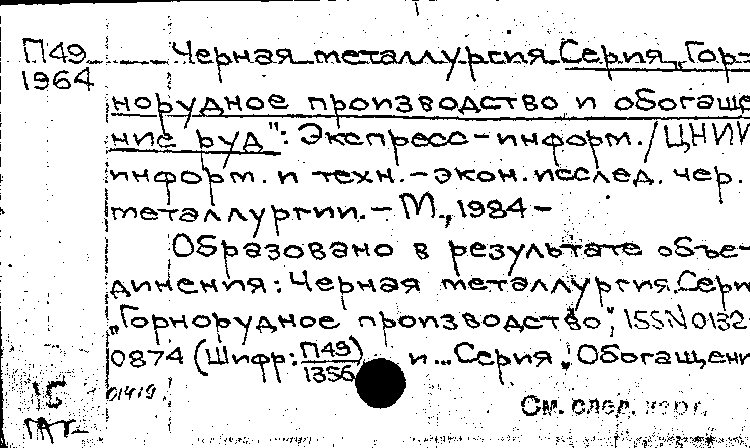 П49 Черная металлургия. Серия „Гор-
1964
норудное производство и обогаще
ние руд": Экспресс-информ./ЦНИИ
информ. и техн.-экон. исслед. чер.
металлургии. – М., 1984 –
Образовано в результате объе-
динения: Черная металлургия. Сери
„Горнорудное производство", ISSN 0132
0874 (Шифр: П49/1356) и ... Серия „Обогащени
01419.
См. след. карт.